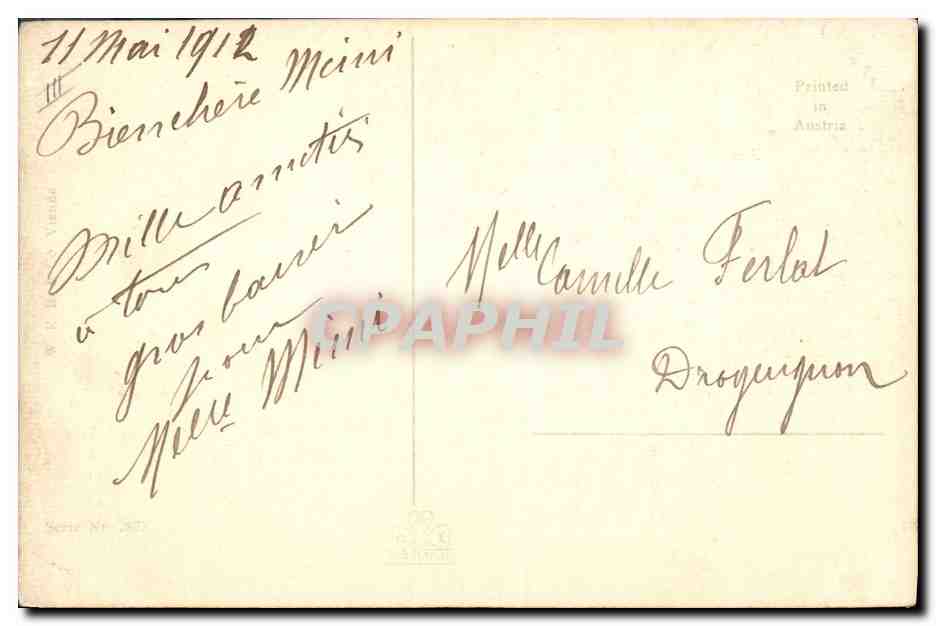 11 Mai 1912
III
Bien chère Mimi
Mille amitiés
à tous
gros baiser
pour
Melle Mimi
Printed
in
Austria
Melle Camille Ferlat
Draguignan
Vienne
Serie Nr.
CPAPHIL